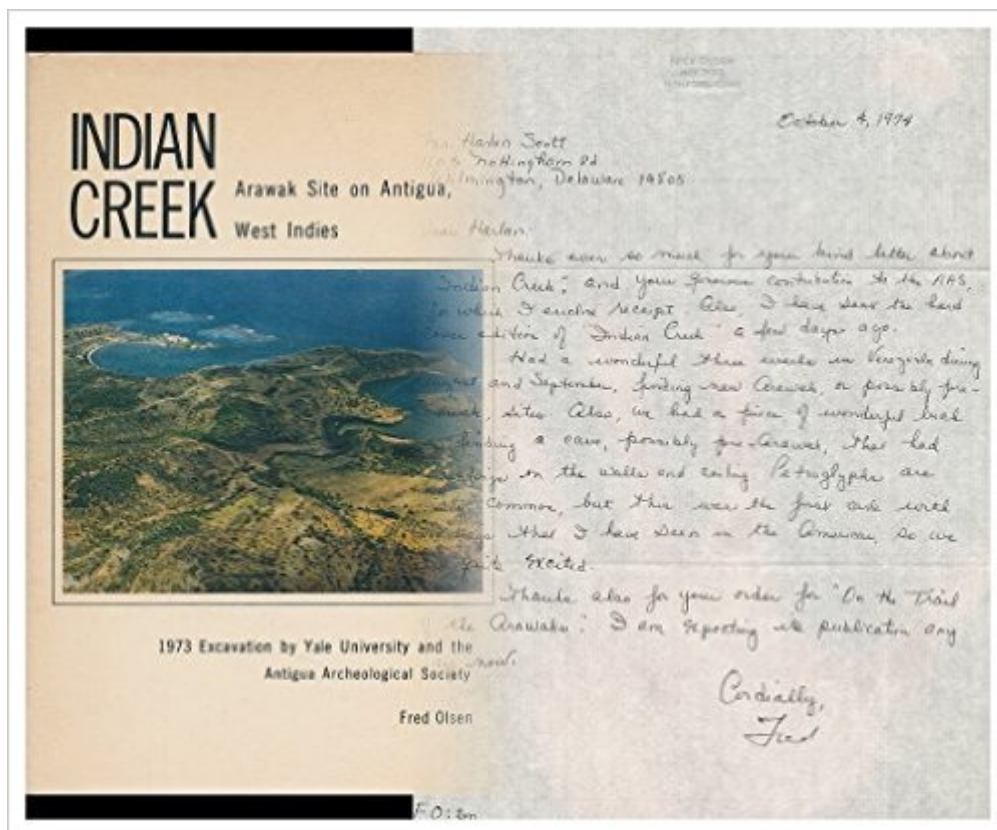 INDIAN
CREEK
Arawak Site on Antigua,
West Indies
1973 Excavation by Yale University and the
Antigua Archeological Society
Fred Olsen
October 4, 1974
Harlan Scott
Nottingham Rd
Wilmington, Delaware 19805
Harlan:
Thanks ever so much for your kind letter about
"Indian Creek", and your generous contribution to the AAS,
for which I enclose receipt. Also, I have sent the hard
edition of "Indian Creek" a few days ago.
Had a wonderful three weeks in Venezuela during
and September, finding new Arawak, or possibly pre-
sites. Also, we had a piece of wonderful luck
finding a cave, possibly pre-Arawak, that had
on the walls and ceiling Petroglyphs are
common, but this was the first cave with
that I have seen in the so we
quite excited.
Thanks also for your order for "On the Trail
the Arawaks". I am expecting its publication any
now.
Cordially,
Fred
FO: